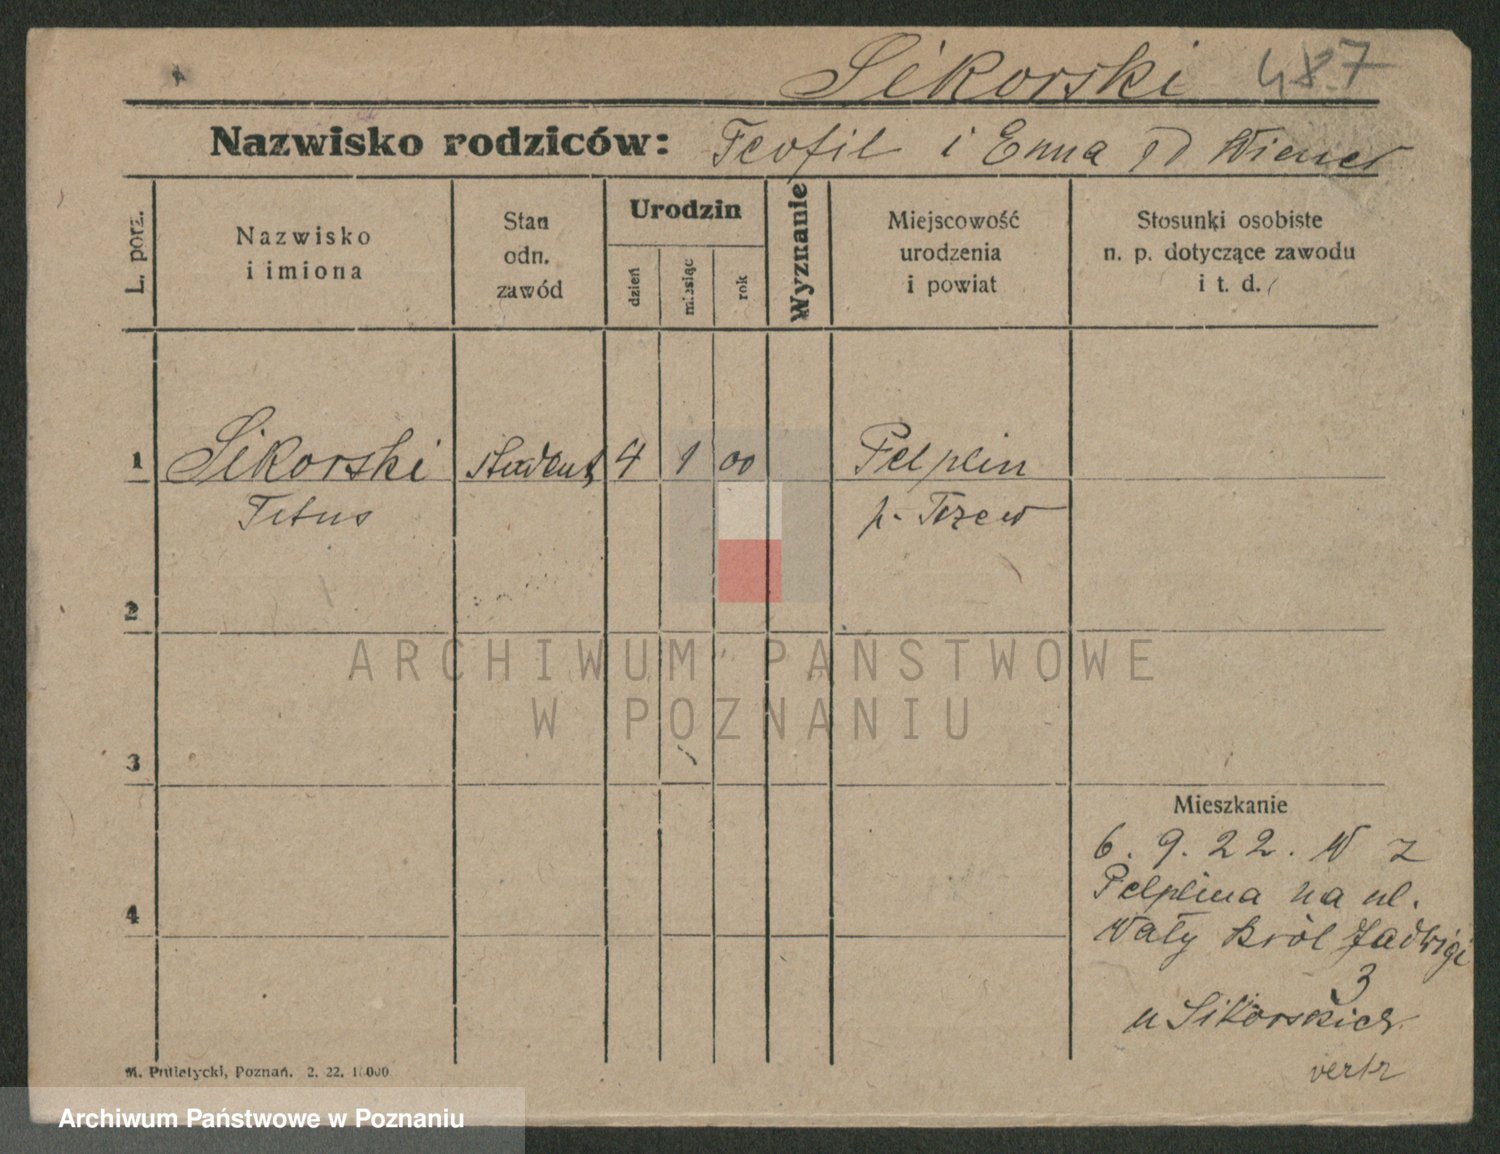 Sikorski 487
Nazwisko rodziców: Teofil i Emma od Wiener
L. porz.
Nazwisko
i imiona
Stan
odn.
zawód
Urodzin
dzień
miesiąc
rok
Wyznanie
Miejscowość
urodzenia
i powiat
Stosunki osobiste
n. p. dotyczące zawodu
i t. d.
1 Sikorski student 4 1 00 Pelplin
Titus p. Tczew
2
3
4
Mieszkanie
6. 9. 22. W z
Pelplina na ul.
Wały Król Jadwigi
3
u Sikorskich
M. Putiatycki, Poznań. 2. 22. 10000
ARCHIWUM PAŃSTWOWE
W POZNANIU
Archiwum Państwowe w Poznaniu